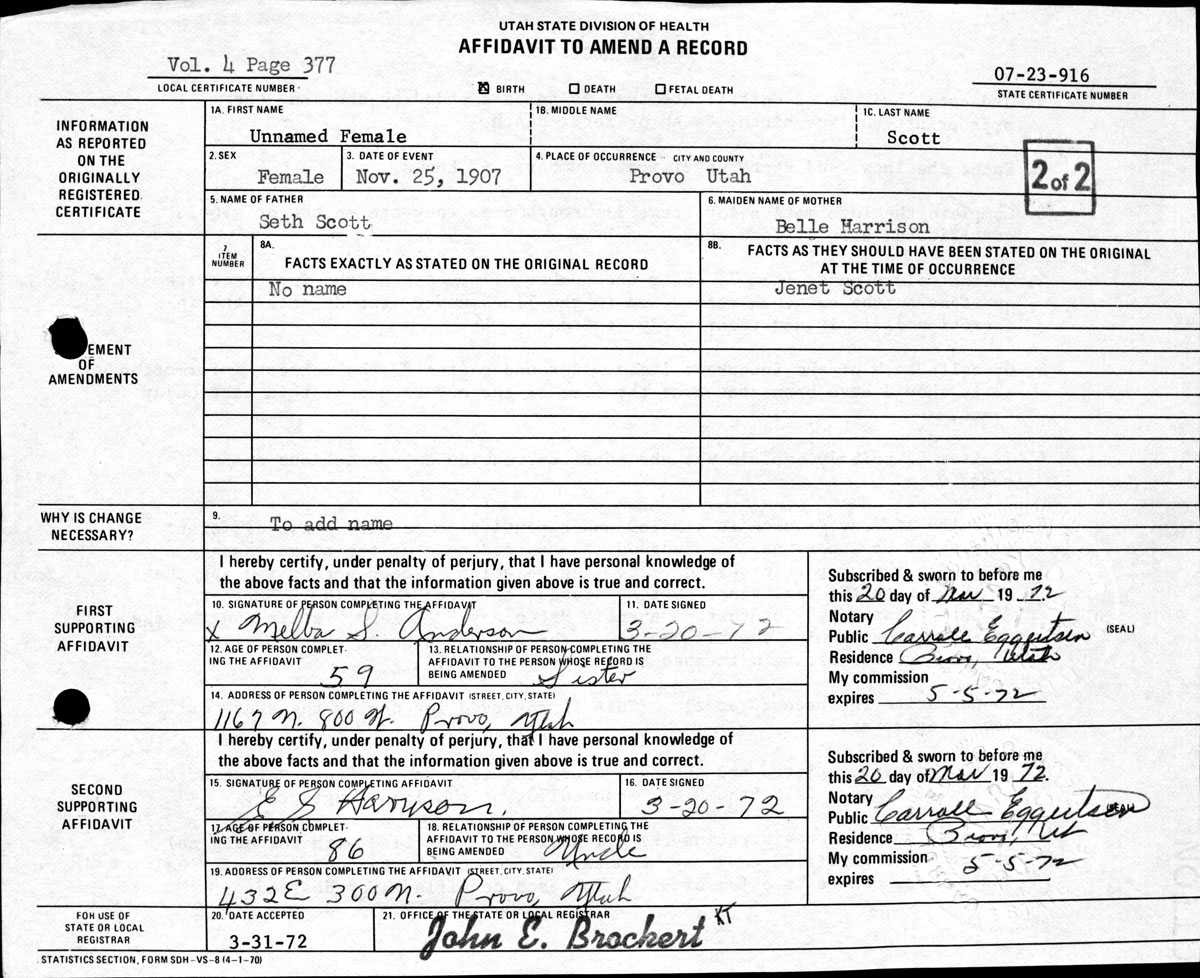 UTAH STATE DIVISION OF HEALTH
AFFIDAVIT TO AMEND A RECORD
Vol. 4 Page 377
LOCAL CERTIFICATE NUMBER
☒ BIRTH ☐ DEATH ☐ FETAL DEATH
07-23-916
STATE CERTIFICATE NUMBER
INFORMATION
AS REPORTED
ON THE
ORIGINALLY
REGISTERED
CERTIFICATE
1A. FIRST NAME
Unnamed Female
1B. MIDDLE NAME
1C. LAST NAME
Scott
2. SEX
Female
3. DATE OF EVENT
Nov. 25, 1907
4. PLACE OF OCCURRENCE - CITY AND COUNTY
Provo Utah
2 of 2
5. NAME OF FATHER
Seth Scott
6. MAIDEN NAME OF MOTHER
Belle Harrison
7
ITEM
NUMBER
8A.
FACTS EXACTLY AS STATED ON THE ORIGINAL RECORD
8B.
FACTS AS THEY SHOULD HAVE BEEN STATED ON THE ORIGINAL
AT THE TIME OF OCCURRENCE
No name
Jenet Scott
EMENT
OF
AMENDMENTS
WHY IS CHANGE
NECESSARY?
9.
To add name
FIRST
SUPPORTING
AFFIDAVIT
I hereby certify, under penalty of perjury, that I have personal knowledge of
the above facts and that the information given above is true and correct.
10. SIGNATURE OF PERSON COMPLETING THE AFFIDAVIT
x Melba S. Anderson
11. DATE SIGNED
3-20-72
12. AGE OF PERSON COMPLET-
ING THE AFFIDAVIT
59
13. RELATIONSHIP OF PERSON COMPLETING THE
AFFIDAVIT TO THE PERSON WHOSE RECORD IS
BEING AMENDED
Sister
14. ADDRESS OF PERSON COMPLETING THE AFFIDAVIT (STREET, CITY, STATE)
1167 N. 800 W. Provo, Utah
Subscribed & sworn to before me
this 20 day of Mar 19 72
Notary
Public Carrall Eggertsen (SEAL)
Residence Provo, Utah
My commission
expires 5-5-72
SECOND
SUPPORTING
AFFIDAVIT
I hereby certify, under penalty of perjury, that I have personal knowledge of
the above facts and that the information given above is true and correct.
15. SIGNATURE OF PERSON COMPLETING AFFIDAVIT
E S Harrison,
16. DATE SIGNED
3-20-72
17. AGE OF PERSON COMPLET-
ING THE AFFIDAVIT
86
18. RELATIONSHIP OF PERSON COMPLETING THE
AFFIDAVIT TO THE PERSON WHOSE RECORD IS
BEING AMENDED
Uncle
19. ADDRESS OF PERSON COMPLETING THE AFFIDAVIT (STREET, CITY, STATE)
432 E 300 N. Provo, Utah
Subscribed & sworn to before me
this 20 day of Mar 19 72.
Notary
Public Carrall Eggertsen (SEAL)
Residence Provo, Ut
My commission
expires 5-5-72
FOR USE OF
STATE OR LOCAL
REGISTRAR
20. DATE ACCEPTED
3-31-72
21. OFFICE OF THE STATE OR LOCAL REGISTRAR
John E. Brockert KT
STATISTICS SECTION, FORM SDH-VS-8 (4-1-70)